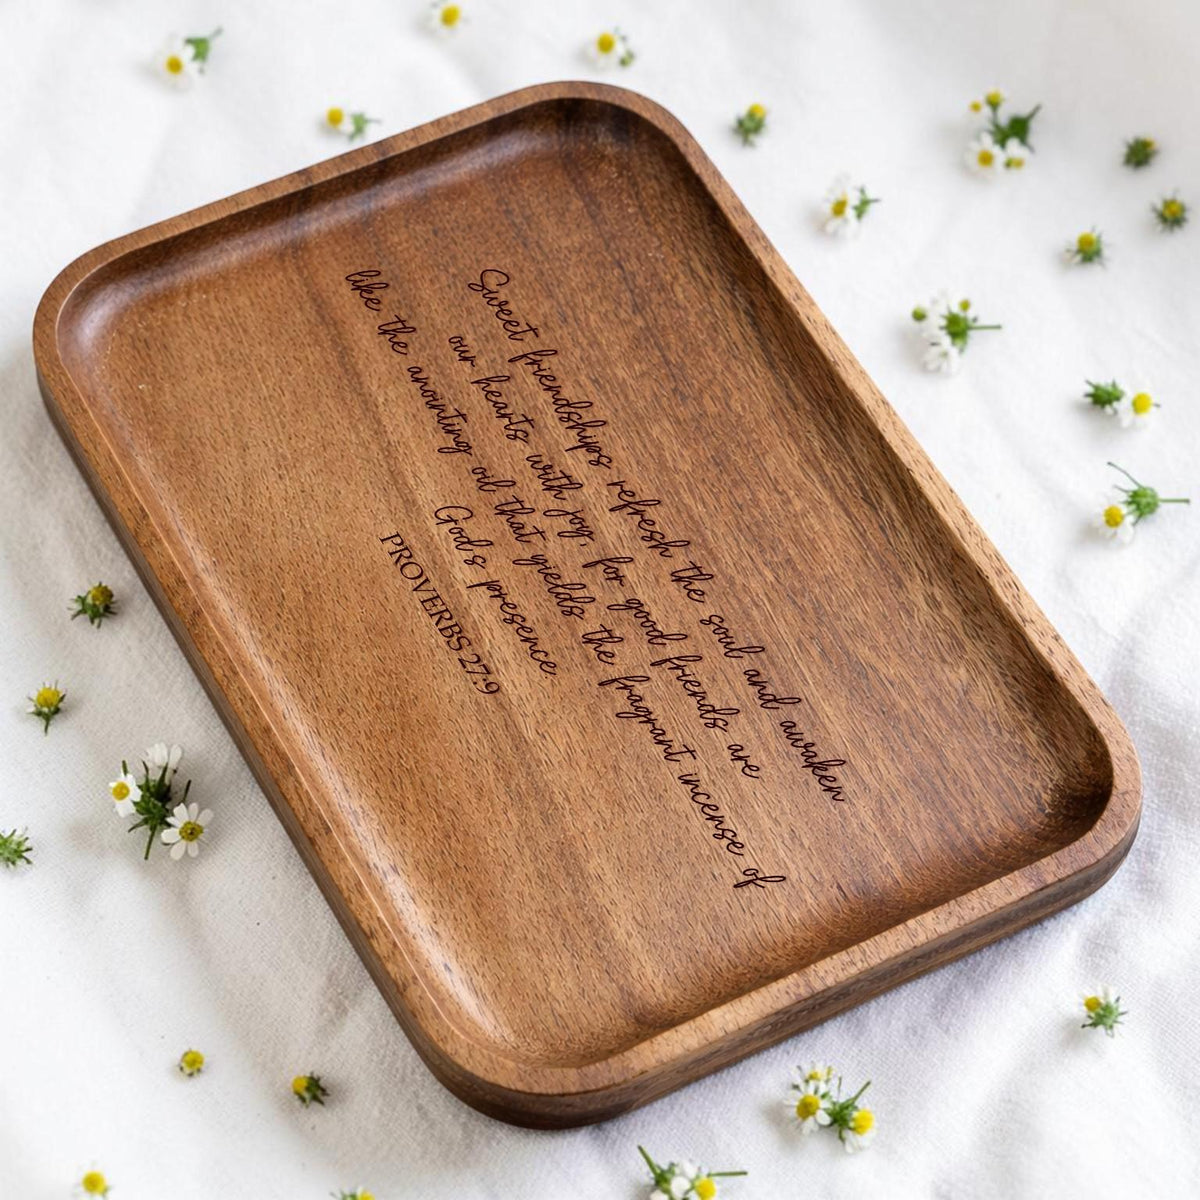 Sweet friendships refresh the soul and awaken
our hearts with joy, for good friends are
like the anointing oil that yields the fragrant incense of
God's presence.
PROVERBS 27:9